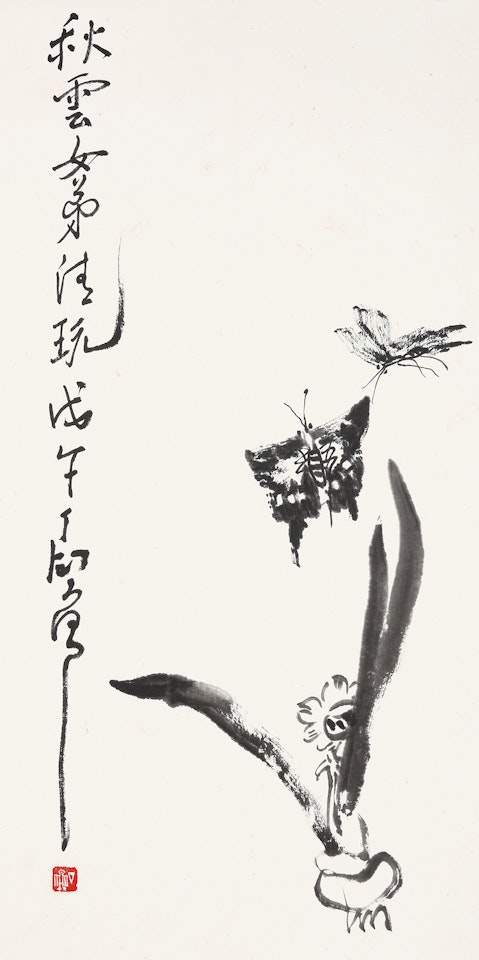 秋雲女弟清玩戊午丁衍庸